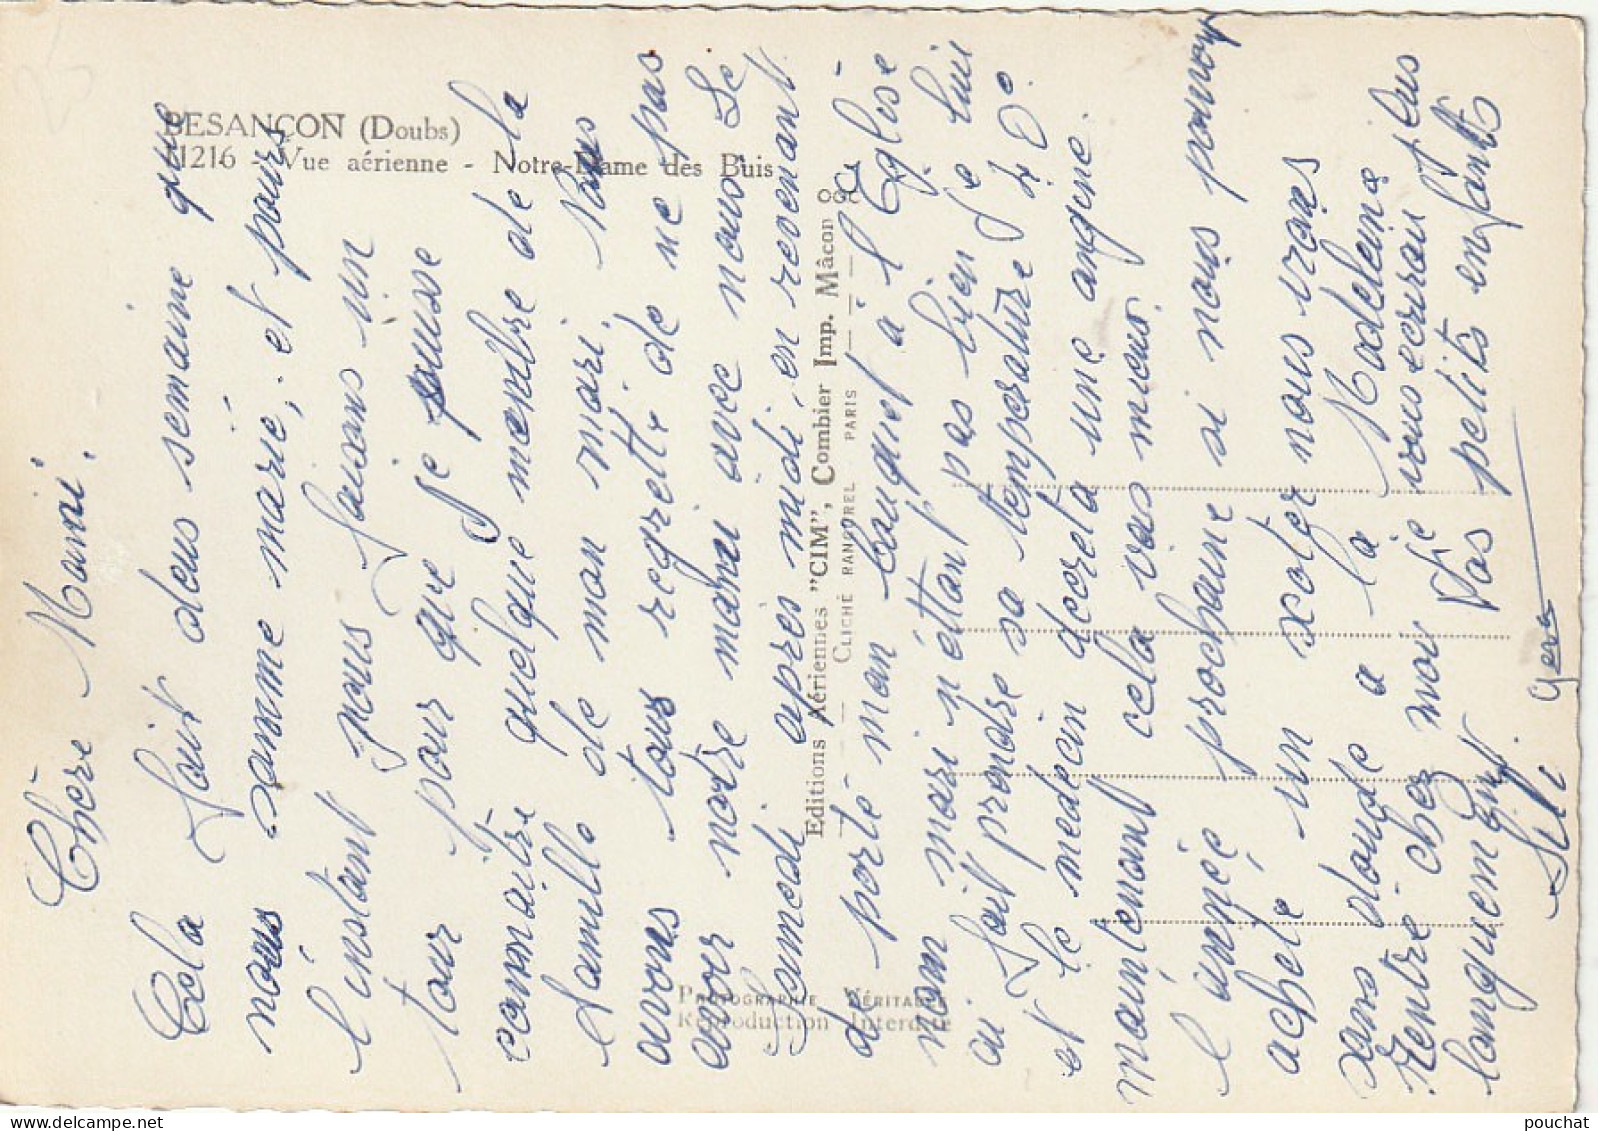 BESANÇON (Doubs)
11216 - Vue aérienne - Notre-Dame des Buis
Editions Aériennes "CIM", Combier Imp. Mâcon
CLICHÉ RANCUREL - PARIS
PHOTOGRAPHIE VÉRITABLE
Reproduction Interdite
Chère
Cela fait deux semaine que
nous somme marié, et pour
l'instant nous faisons un
tour pour que je puisse
connaitre quelque membre de la
famille de mon mari. Nous
avons tous regretté de ne pas
avoir notre mami avec nous. Le
samedi après midi, en revenant
de porté mon bouquet à l'Eglise
mon mari n'éttant pas bien je lui
ai fait prendre sa température 40°
et le medecin decreta une angine.
maintenant cela vas mieux.
l'année prochaine si nous pouvons
acheté un scoter nous irons
sans doute a la Madeleine
Rentré chez moi je vous ecrirait plus
longuement. Vos petits enfants
25
pouchat